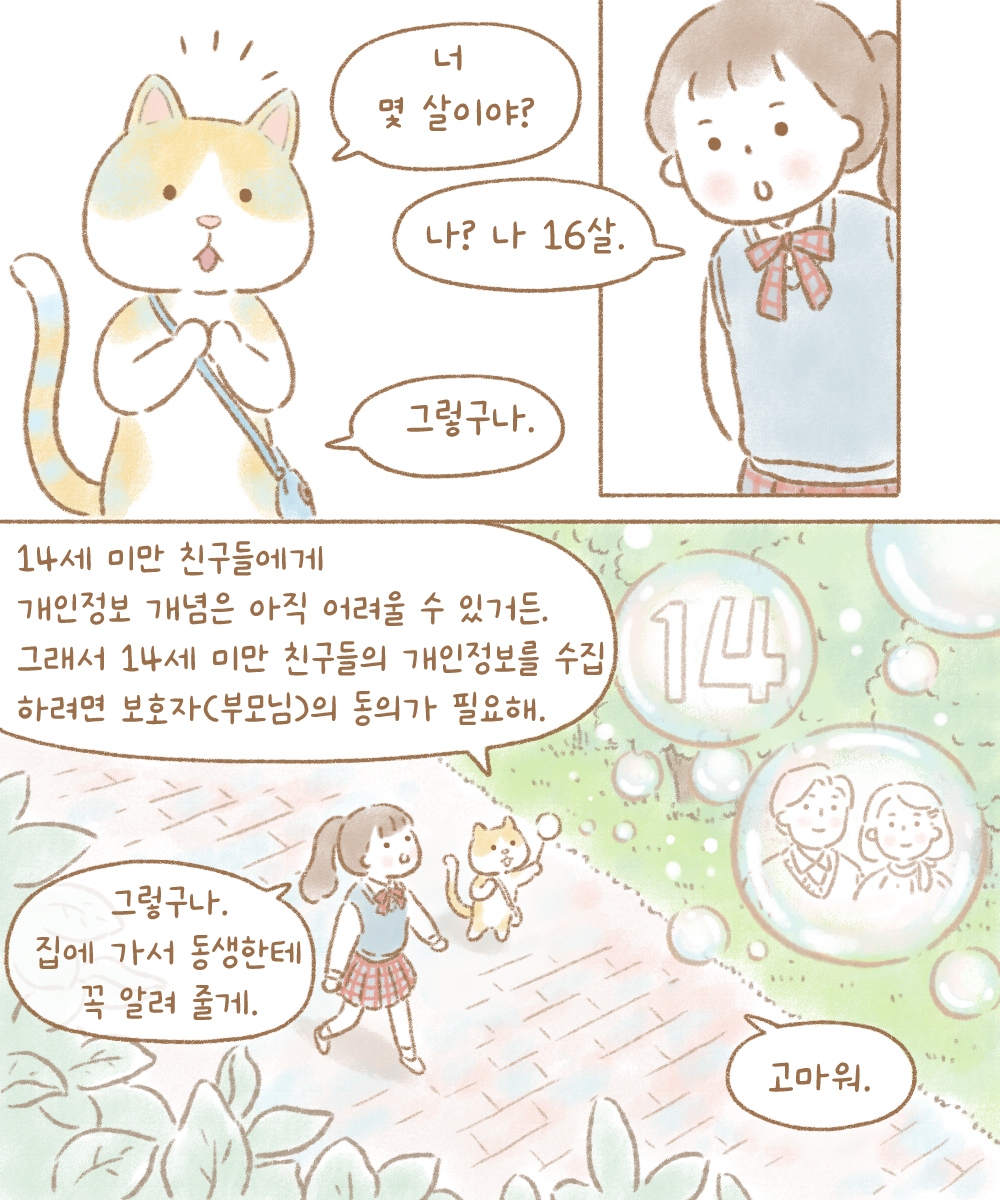 너
몇 살이야?
나? 나 16살.
그렇구나.
14세 미만 친구들에게
개인정보 개념은 아직 어려울 수 있거든.
그래서 14세 미만 친구들의 개인정보를 수집
하려면 보호자(부모님)의 동의가 필요해.
14
그렇구나.
집에 가서 동생한테
꼭 알려 줄게.
고마워.